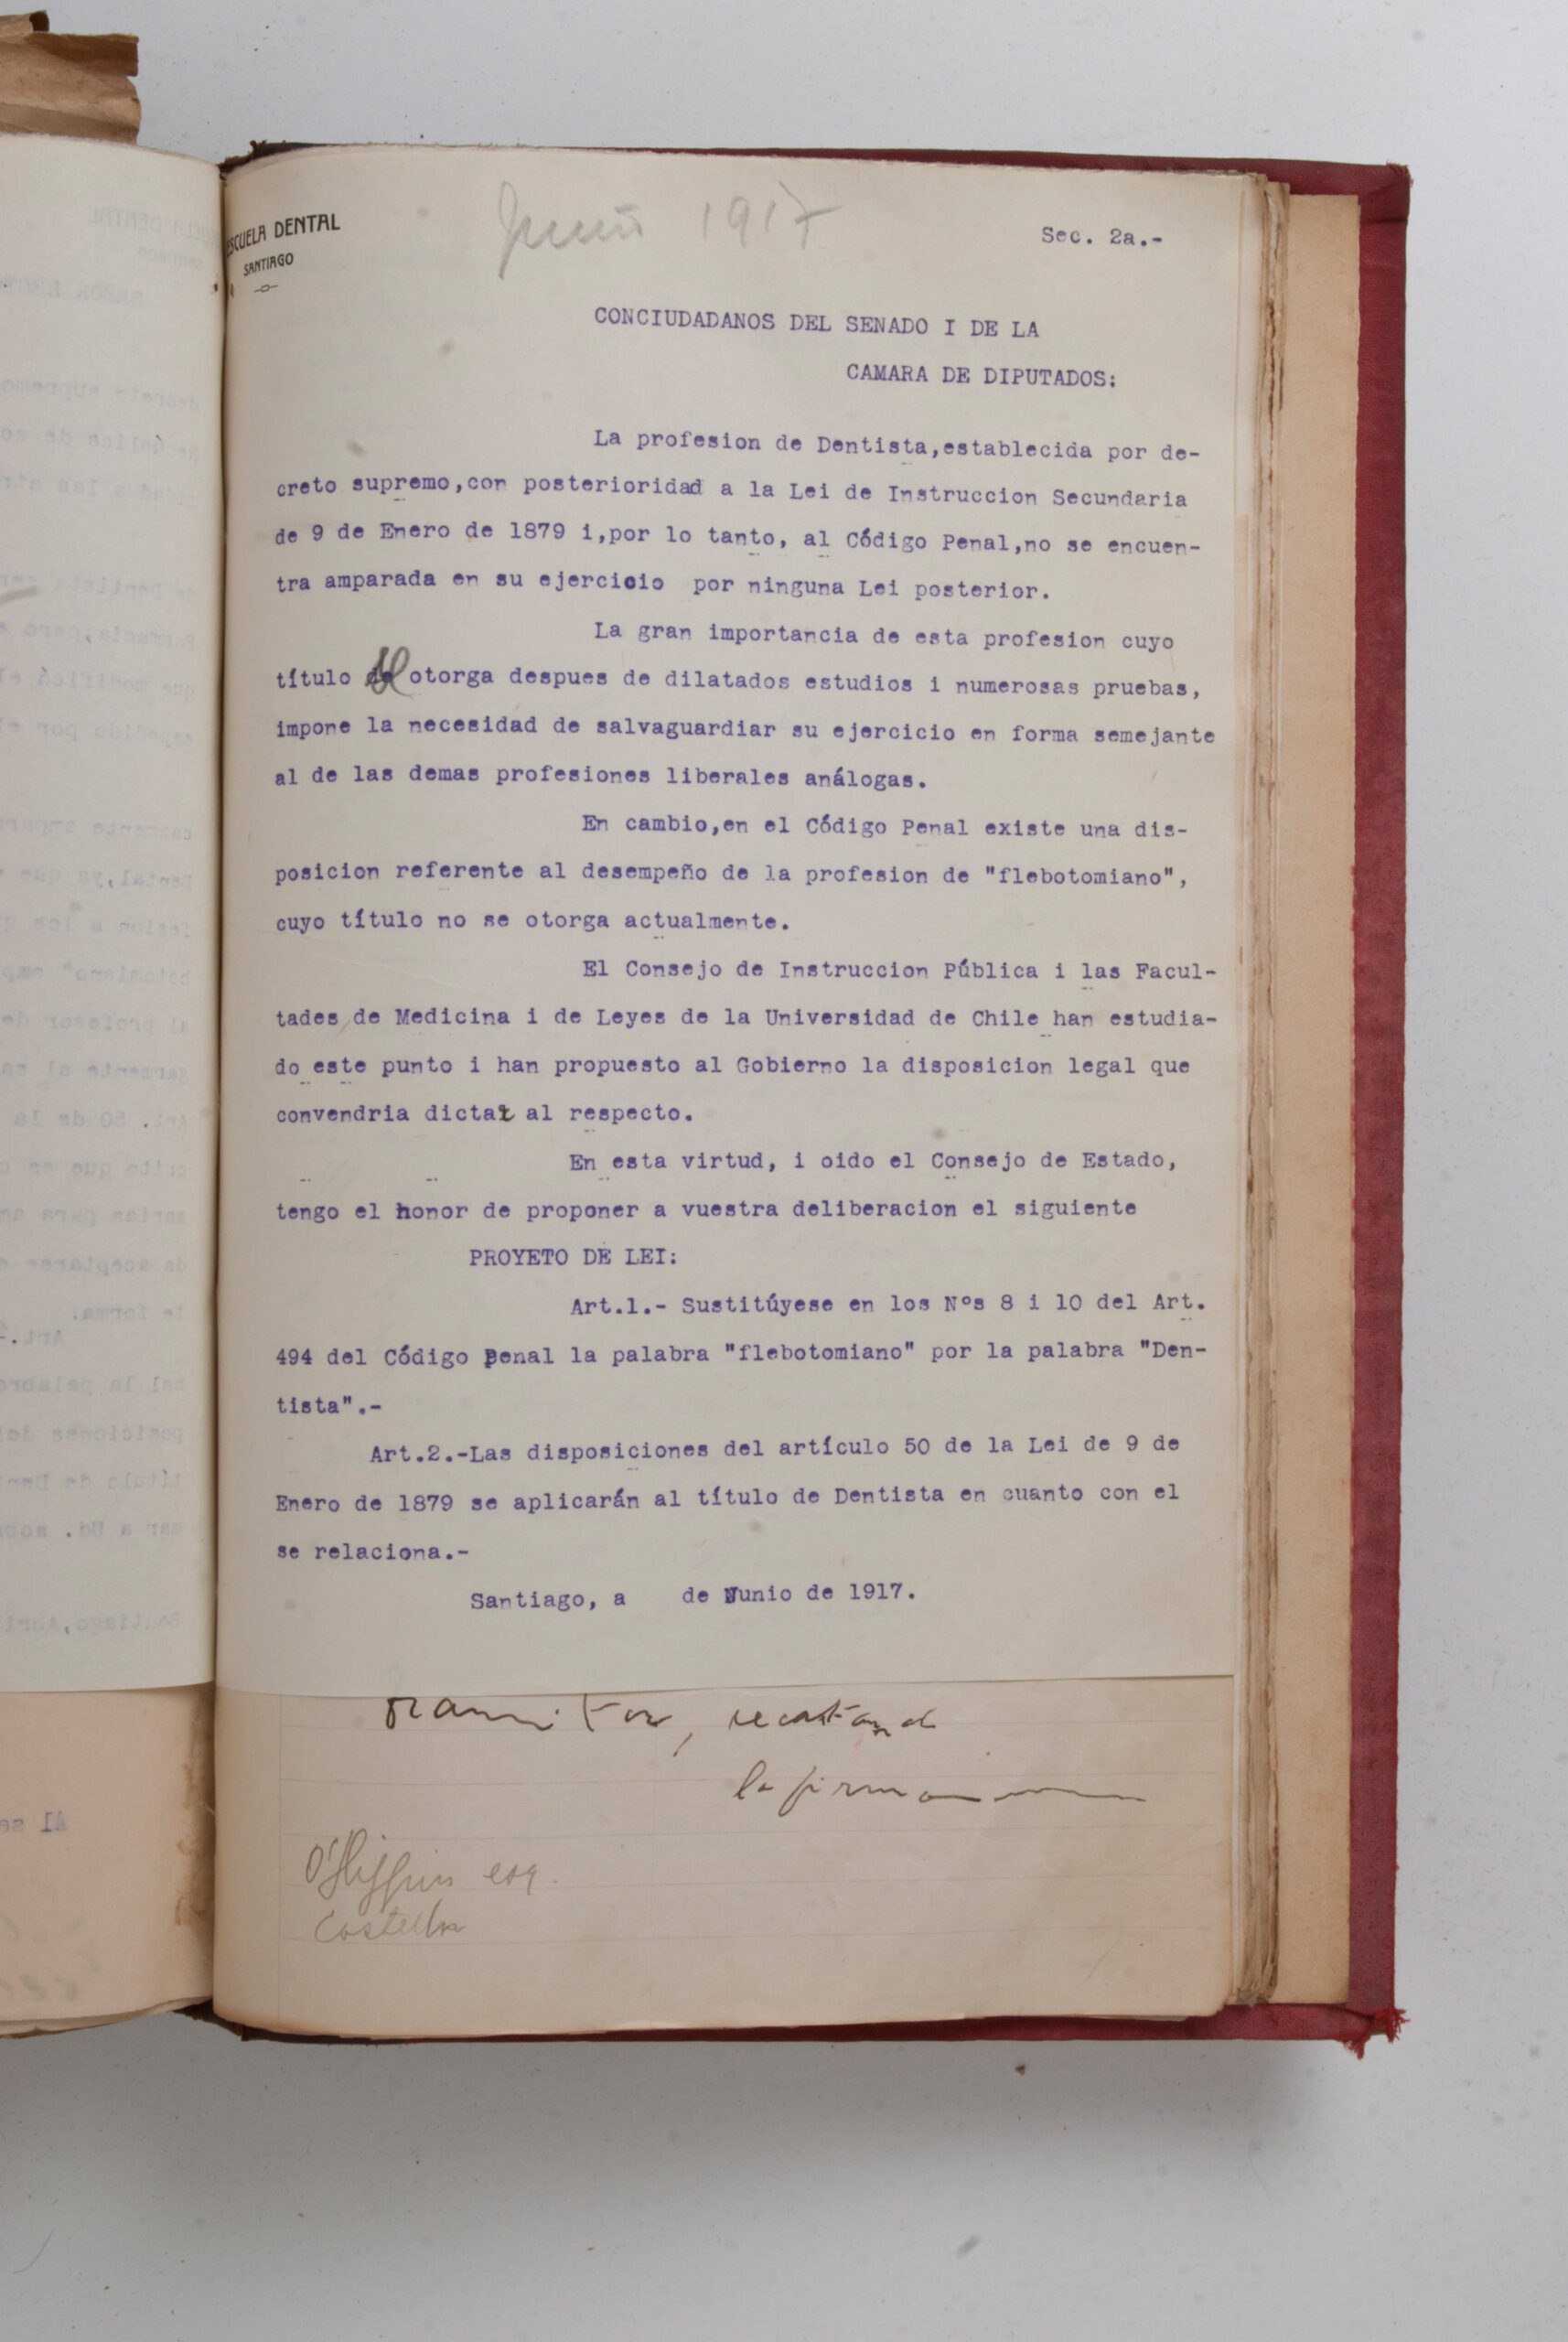 ESCUELA DENTAL
SANTIAGO
Junio 1917
Sec. 2a.-
CONCIUDADANOS DEL SENADO I DE LA
CAMARA DE DIPUTADOS:
La profesion de Dentista,establecida por de-
creto supremo,con posterioridad a la Lei de Instruccion Secundaria
de 9 de Enero de 1879 i,por lo tanto, al Código Penal,no se encuen-
tra amparada en su ejercicio por ninguna Lei posterior.
La gran importancia de esta profesion cuyo
título se otorga despues de dilatados estudios i numerosas pruebas,
impone la necesidad de salvaguardiar su ejercicio en forma semejante
al de las demas profesiones liberales análogas.
En cambio,en el Código Penal existe una dis-
posicion referente al desempeño de la profesion de "flebotomiano",
cuyo título no se otorga actualmente.
El Consejo de Instruccion Pública i las Facul-
tades de Medicina i de Leyes de la Universidad de Chile han estudia-
do este punto i han propuesto al Gobierno la disposicion legal que
convendria dictar al respecto.
En esta virtud, i oido el Consejo de Estado,
tengo el honor de proponer a vuestra deliberacion el siguiente
PROYETO DE LEI:
Art.1.- Sustitúyese en los Nºs 8 i 10 del Art.
494 del Código Penal la palabra "flebotomiano" por la palabra "Den-
tista".-
Art.2.-Las disposiciones del artículo 50 de la Lei de 9 de
Enero de 1879 se aplicarán al título de Dentista en cuanto con el
se relaciona.-
Santiago, a de Junio de 1917.
la firma
O'Higgins esq.